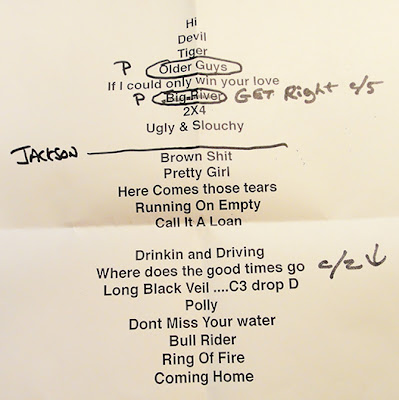 Hi
Devil
Tiger
P Older Guys
If I could only win your love
P Big River GET Right c/5
2X4
Ugly & Slouchy
JACKSON
Brown Shit
Pretty Girl
Here Comes those tears
Running On Empty
Call It A Loan
Drinkin and Driving
Where does the good times go c/2 ↓
Long Black Veil ....C3 drop D
Polly
Dont Miss Your water
Bull Rider
Ring Of Fire
Coming Home